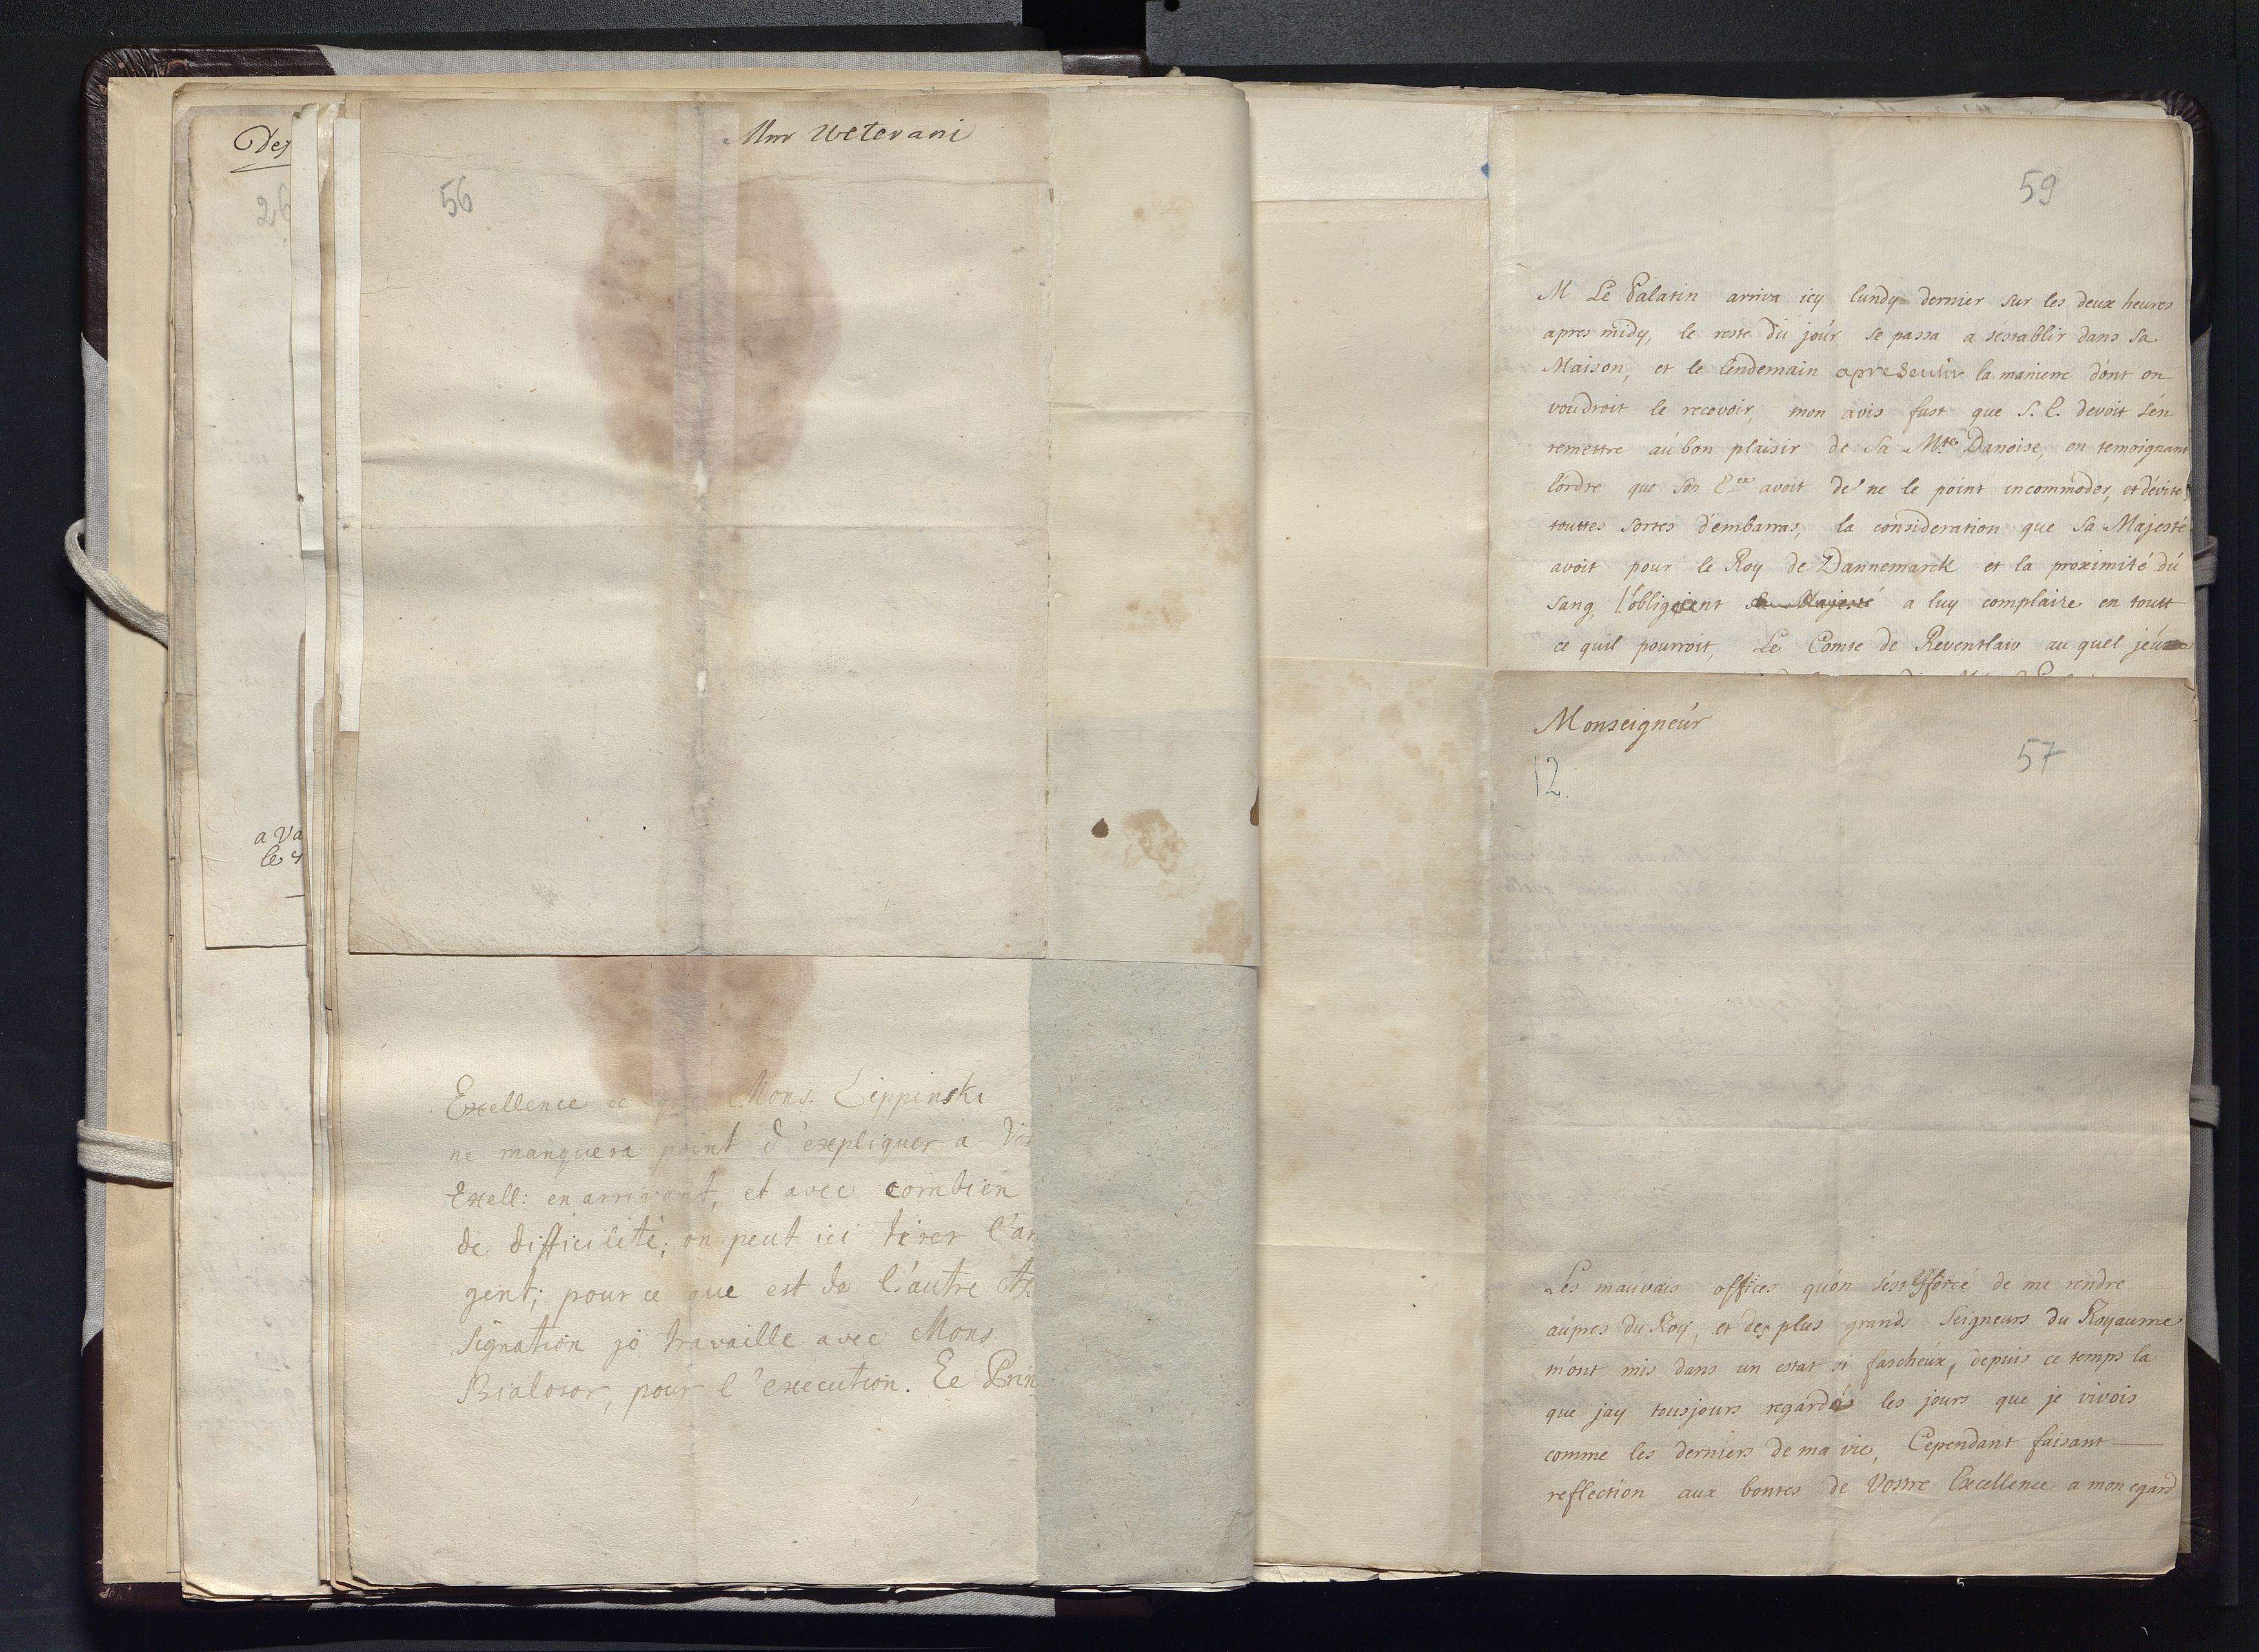 Des
26
a Va
le 4
Mnr Veterani
56
Excellence ce Mons. Lippinski
ne manquera point d'expliquer a Vos
Exell: en arrivant, et avec combien
de difficilité; on peut ici tirer l'ar
gent; pour ce que est de l'autre As
signation je travaille avec Mons
Bialozor, pour l'execution. Le Prin
59
M Le Palatin arriva icy lundy dernier sur les deux heures
apres midy, le reste du jour se passa a s'establir dans sa
Maison, et le lendemain a la maniere dont on
voudroit le recevoir, mon avis fust que S. E. devoit s'en
remettre au bon plaisir de Sa Mté Danoise, en temoignant
l'ordre que son Ece avoit de ne le point incommoder, et d'eviter
touttes sortes d'embarras, la consideration que Sa Majesté
avoit pour le Roy de Dannemarck et la proximité du
sang, l'obligoient a luy complaire en toutt
ce quil pourroit, Le Comte de Reventlaw au quel
Monseigneur
57
12.
Les mauvais offices qu'on s'est efforcé de me rendre
aupres du Roy, et des plus grands Seigneurs du Royaume
m'ont mis dans un estat si fascheux, depuis ce temps la
que jay tousjours regardés les jours que je vivois
comme les derniers de ma vie, Cependant faisant
reflection aux bontes de Vostre Excellence a mon egard